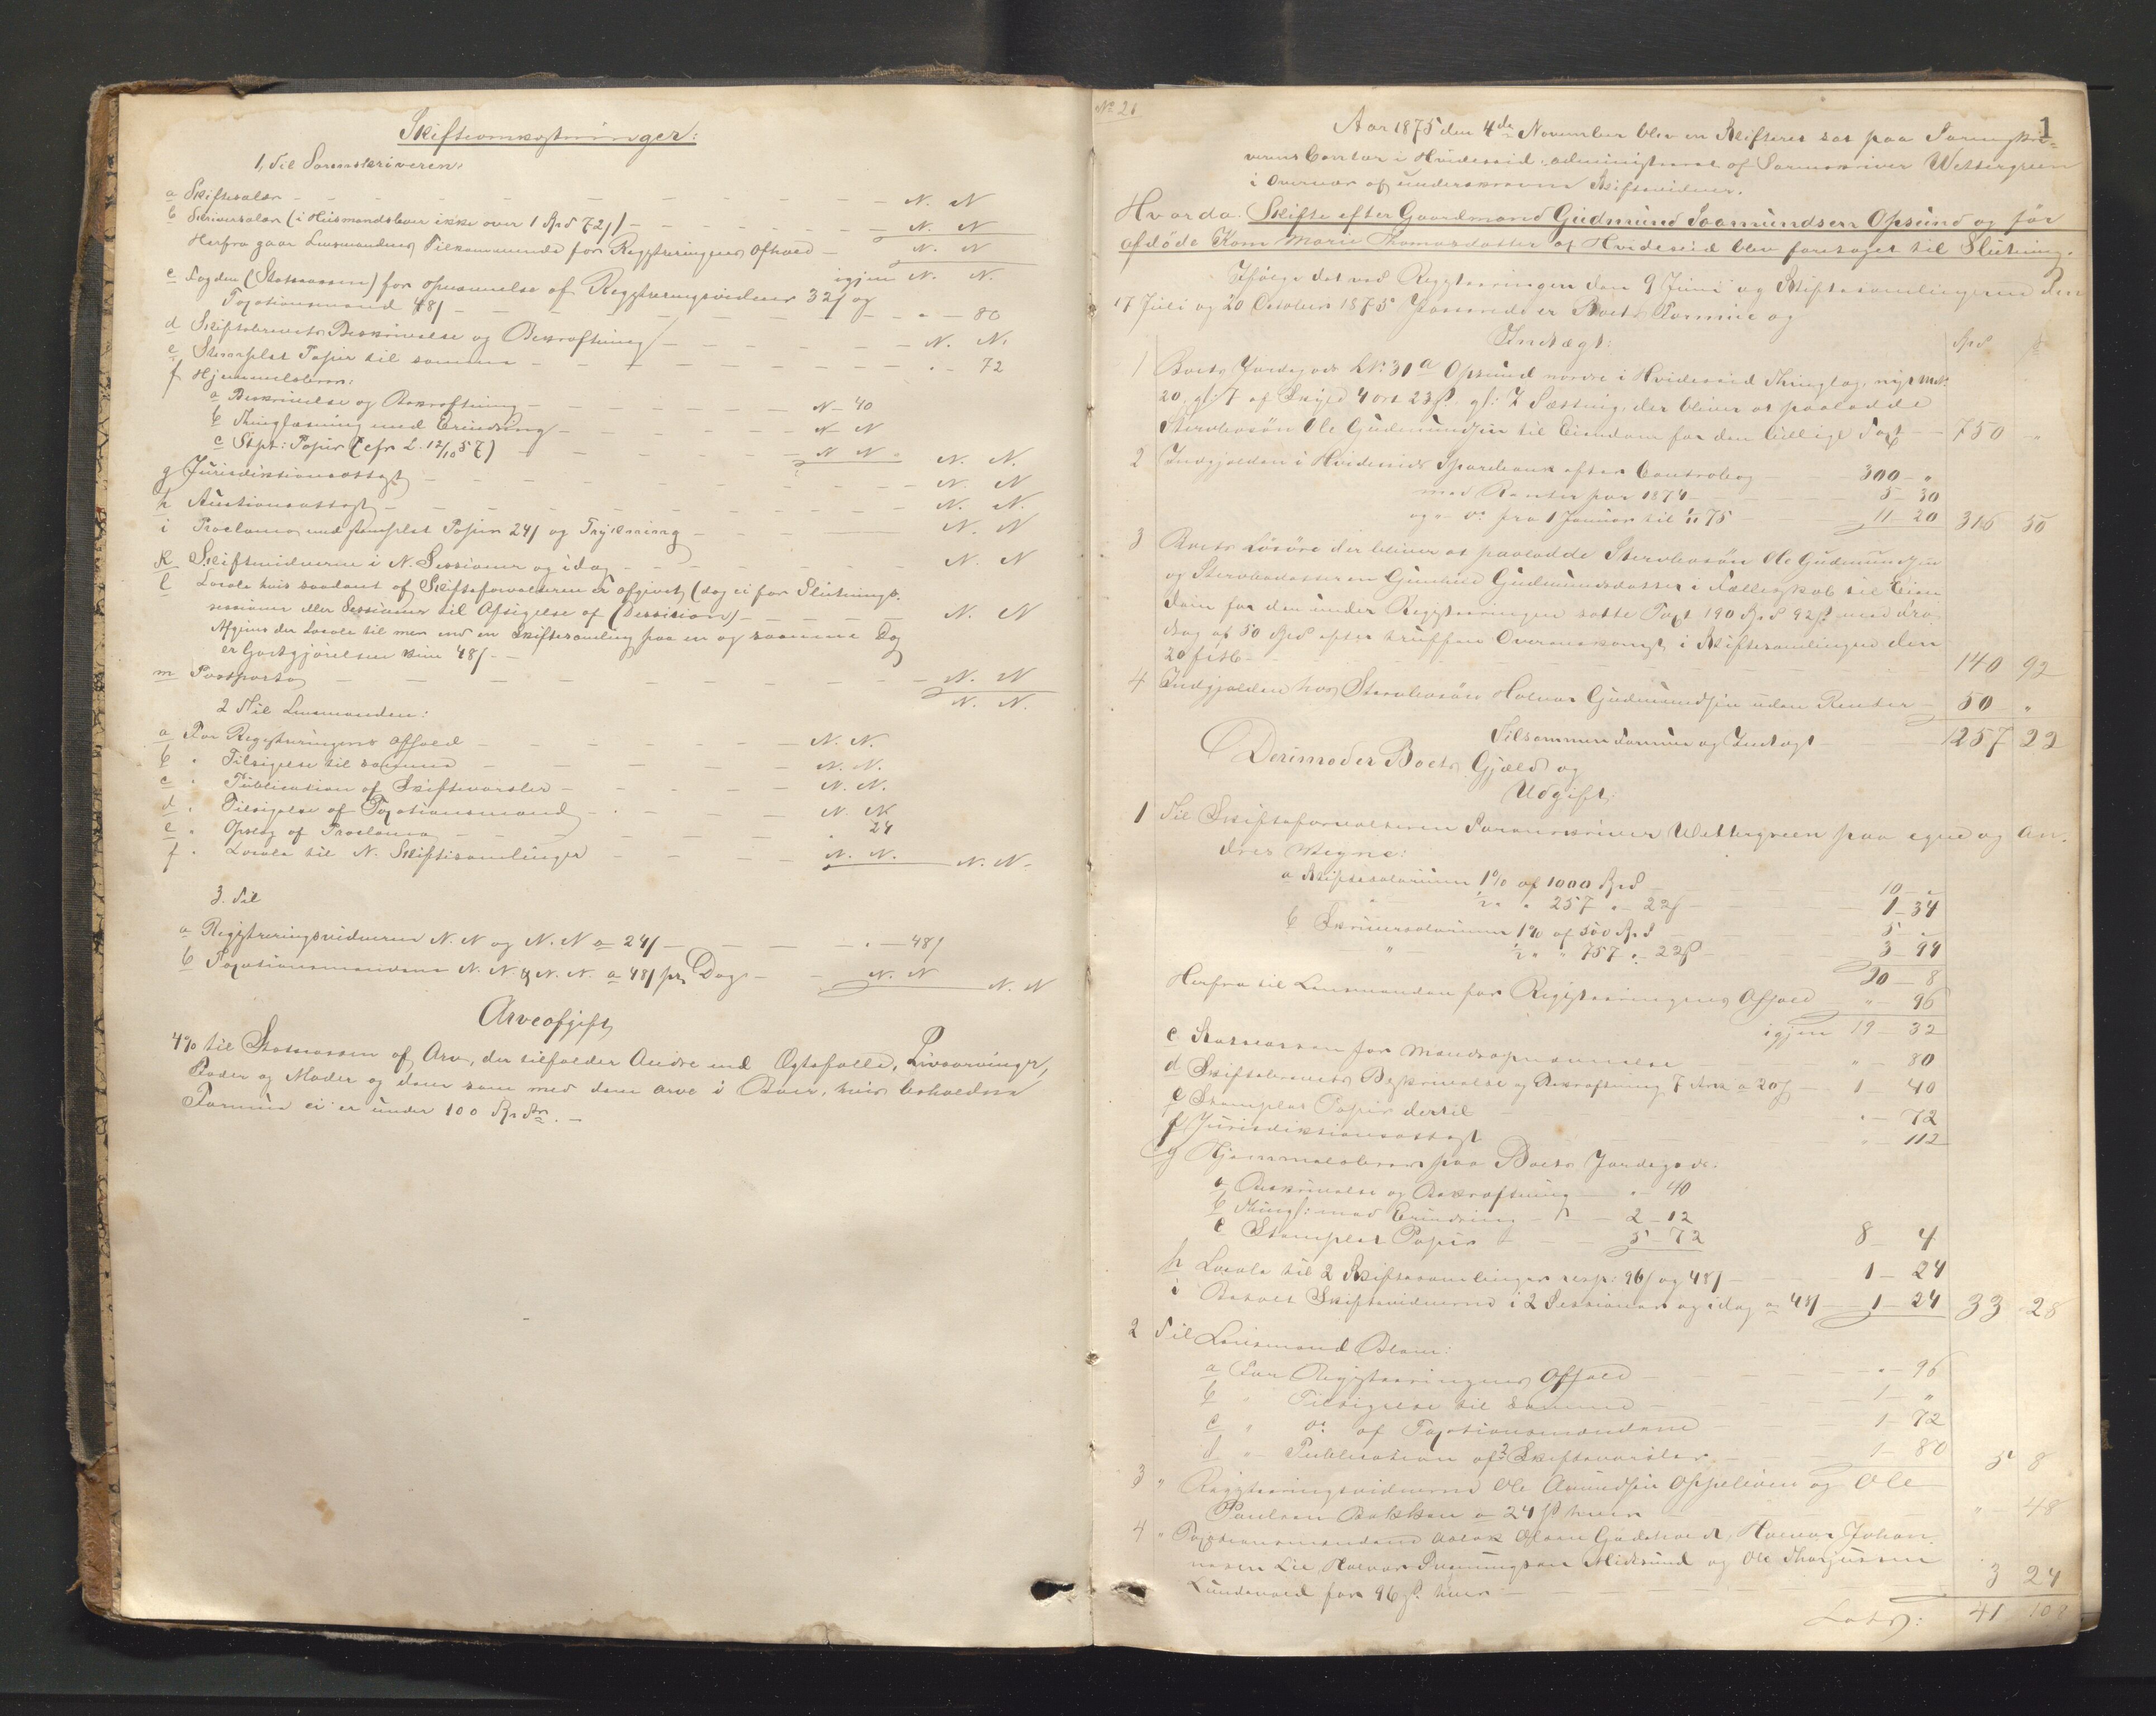 Skifteomkostninger:
1, Til Sorenskriveren:
a Skiftesalær — N. N
b Skriversalær (i Huusmandsboer ikke over 1 Spd 72 s) — N. N
Herfra gaar Lensmandens Tilkommende for Registreringens Afhold — N. N
igjen N. N.
c Fogden (Statskassen) for opnævnelse af Registreringsvidner 32 s og
Taxationsmænd 48 s — " — 80
d Skiftebrevets Beskrivelse og Bekræftning — N. N.
e Stemplet Papir til samme — " — 72
f Hjemmelsbrev:
a Beskrivelse og Bekræftning — N — 40
b Thinglæsning med Erindring — N — N
c Stpt: Papir (cfr L. 12/10 57) — N N N. N.
g Jurisdiktionsattest — N. N
h Auctionsattest — N. N.
i Proclama med stemplet Papir 24 s og Trykning — N. N
k Skiftevidnerne i N. Sessioner og idag — N. N
l Locale hvis saadant af Skifteforvalteren er afgivet (dog ei for Slutnings-
sessioner eller Sessioner til Afsigelse af Decision) — N. N
Afgives der Locale til mer end en Skiftesamling paa en og samme Dag
er Godtgjørelsen kun 48 s —
m Postporto — N. N
N. N.
2 Til Lensmanden:
a For Registreringens Afhold — N. N.
b " Tilsigelse til samme — N. N.
c " Publication af Skiftevarsler — N. N.
d " Tilsigelse af Taxationsmænd — N. N
e " Opslag af Proclama — " 24
f " Locale til N. Skiftesamlinger — N. N. N. N.
3. Til
a Registreringsvidnerne N. N og N. N a 24 s — " — 48 s
b Taxationsmændene N. N & N. N. a 48 s pr Dag — N. N N. N
Arveafgift
4% til Statskassen af Arv, der tilfalder Andre end Ægtefælle, Livsarvinger,
Fader og Moder og dem som med dem arve i Boer, hvis beholdne
Formue ei er under 100 Spdlr. —
No 21
1
Aar 1875 den 4de November blev en Skifteret sat paa Sorenskri-
verens Contor i Hvideseid, administreret af Sorenskriver Wettergreen
i Overvær af underskrevne Skiftevidner.
Hvorda: Skifte efter Gaardmand Gudmund Saamundsen Opsund og før
afdøde Kone Marie Thomasdatter af Hvideseid blev foretaget til Slutning.
Ifølge det ved Registreringen den 9 Juni og Skiftesamlingerne den
17 Juli og 20 October 1875 passerede er Boets Formue og
Indtægt:
Spd s
1 Boets Jordegods LNo 31a Opsund nordre i Hvideseid Thinglag, nyt Mat.
20, gl: 7 af Skyld 4 ort 23 s, gl: Sætting, der bliver at paalodde
Stervbosøn Ole Gudmundsen til Eiendom for den lidlige Taxt — 750 "
2 Indgjælden i Hvideseids Sparebank efter Contrabog 300 — "
med Renter for 1874 — 5 — 30
og " do fra 1 Januar til 1/11 75 — 11 — 20 316 50
3 Boets Løsøre der bliver at paalodde Stervbosøn Ole Gudmundsen
og Stervbodatteren Gunhild Gudmundsdatter i Fællesskab til Eien
dom for den under Registreringen satte Taxt 190 Spd 92 s med Fra
drag af 50 Spd efter truffen Overenskomst i Skiftesamlingen den
20 — 140 92
4 Indgjælden hos Stervbosøn Halvor Gudmundsen uden Renter — 50 — "
Tilsammen Formue og Indtægt — 1257 22
Derimod er Boets Gjæld og
Udgift:
1 Til Skifteforvalteren Sorenskriver Wettergreen paa egne og An-
dres Vegne:
a Skiftesalarium 1% af 1000 Spd — 10 — "
" ½ " " 257 " — 22 s — 1 — 34
b Skriversalarium 1% af 500 Spd — 5 — "
" ½ " " 757 " 22 s — 3 — 94
20 — 8
Herfra til Lensmanden for Registreringens Afhold " — 96
igjen 19 — 32
c Statskassen for Mandsopnævnelse " — 80
d Skiftebrevets Beskrivelse og Bekræftning 7 Ark a 20 s — 1 40
e Stemplet Papir dertil " — 72
f Jurisdiktionsattest " — 112
g Hjemmelsbrev paa Boets Jordegods:
a Beskrivelse og Bekræftning — " — 40
b Thingl: med Erindring — 2 — 12
c Stemplet Papir — 5 — 72 8 4
h Locale til 2 Skiftesamlinger resp: 96 s og 48 s — 1 — 24
i Betalt Skiftevidnerne i 2 Sessioner og idag a 48 s — 1 — 24 33 28
2 Til Lensmand Blom:
a For Registreringens Afhold — " — 96
b " Tilsigelse til samme — 1 — "
c " do af Taxationsmændene — 1 — 72
d " Publication af 2 Skiftevarsler — 1 — 80 5 8
3 " Registreringsvidnerne Ole Amundsen Oppeliden og Ole
Paulsen Bakken a 24 s hver — " 48
4 " Taxationsmændene Aslak Olsen Halvor Johan-
nesen Lie, Halvor Svenningsen Midtsund og Ole Thorjussen
Lundevold for 96 s hver — 3 24
Lateris: 41 108